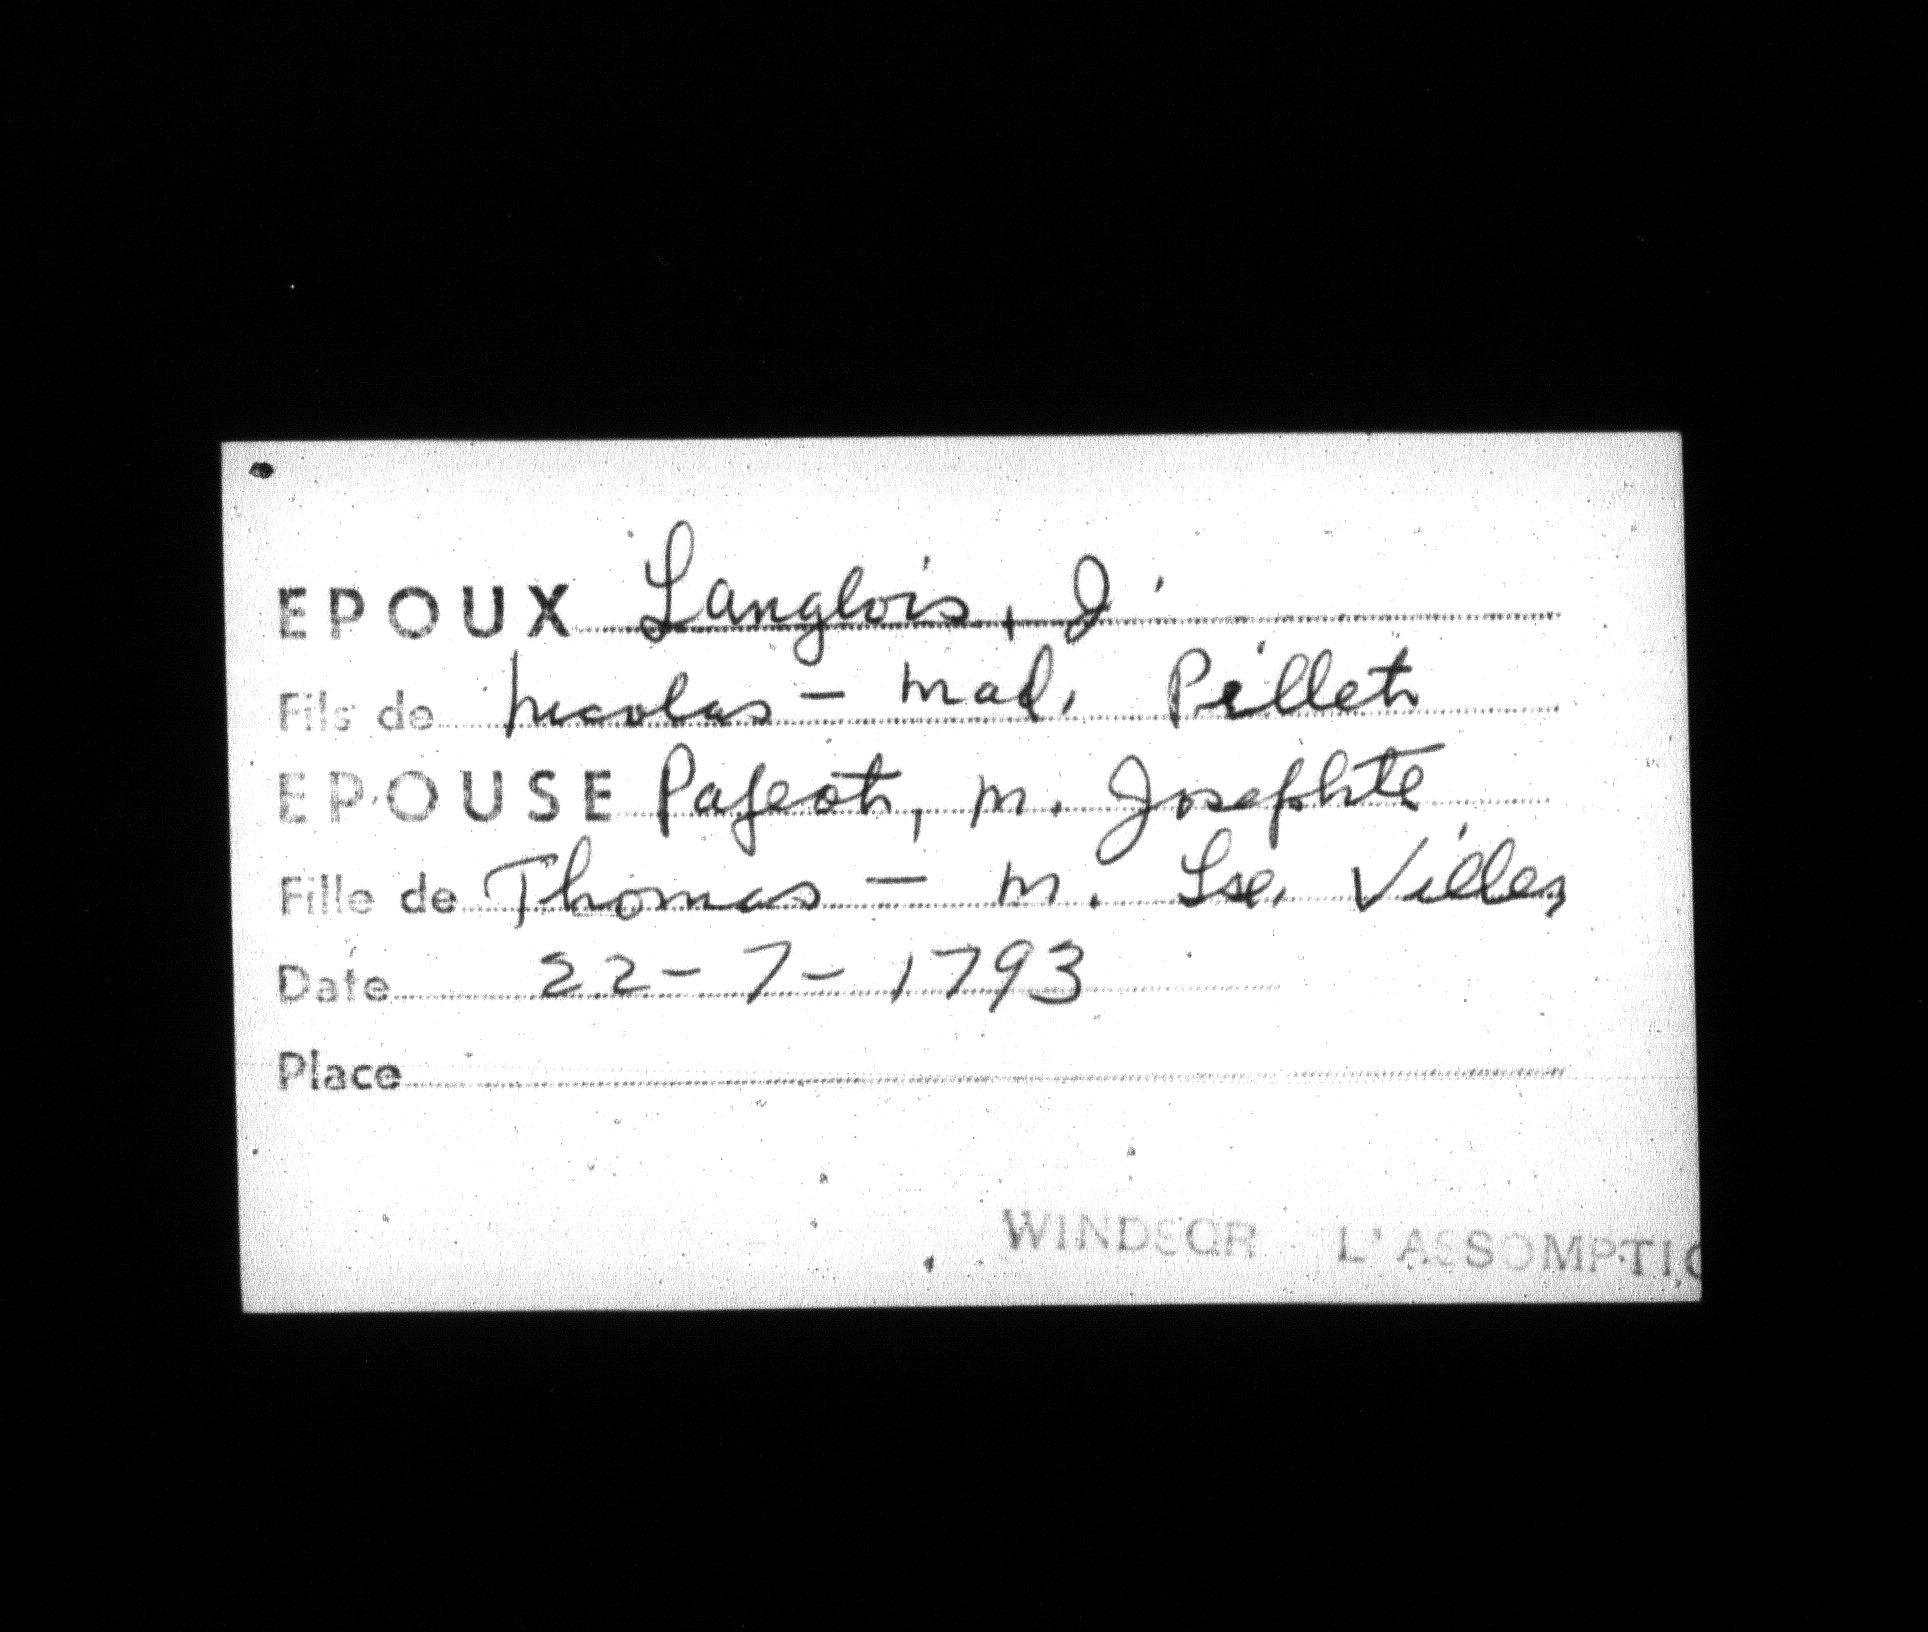 EPOUX Langlois, J.
Fils de Nicolas - Mad. Pillet
EPOUSE Pageot, M. Josephte
Fille de Thomas - M. Lse. Villers
Date 22-7-1793
Place
WINDSOR L'ASSOMPTIO